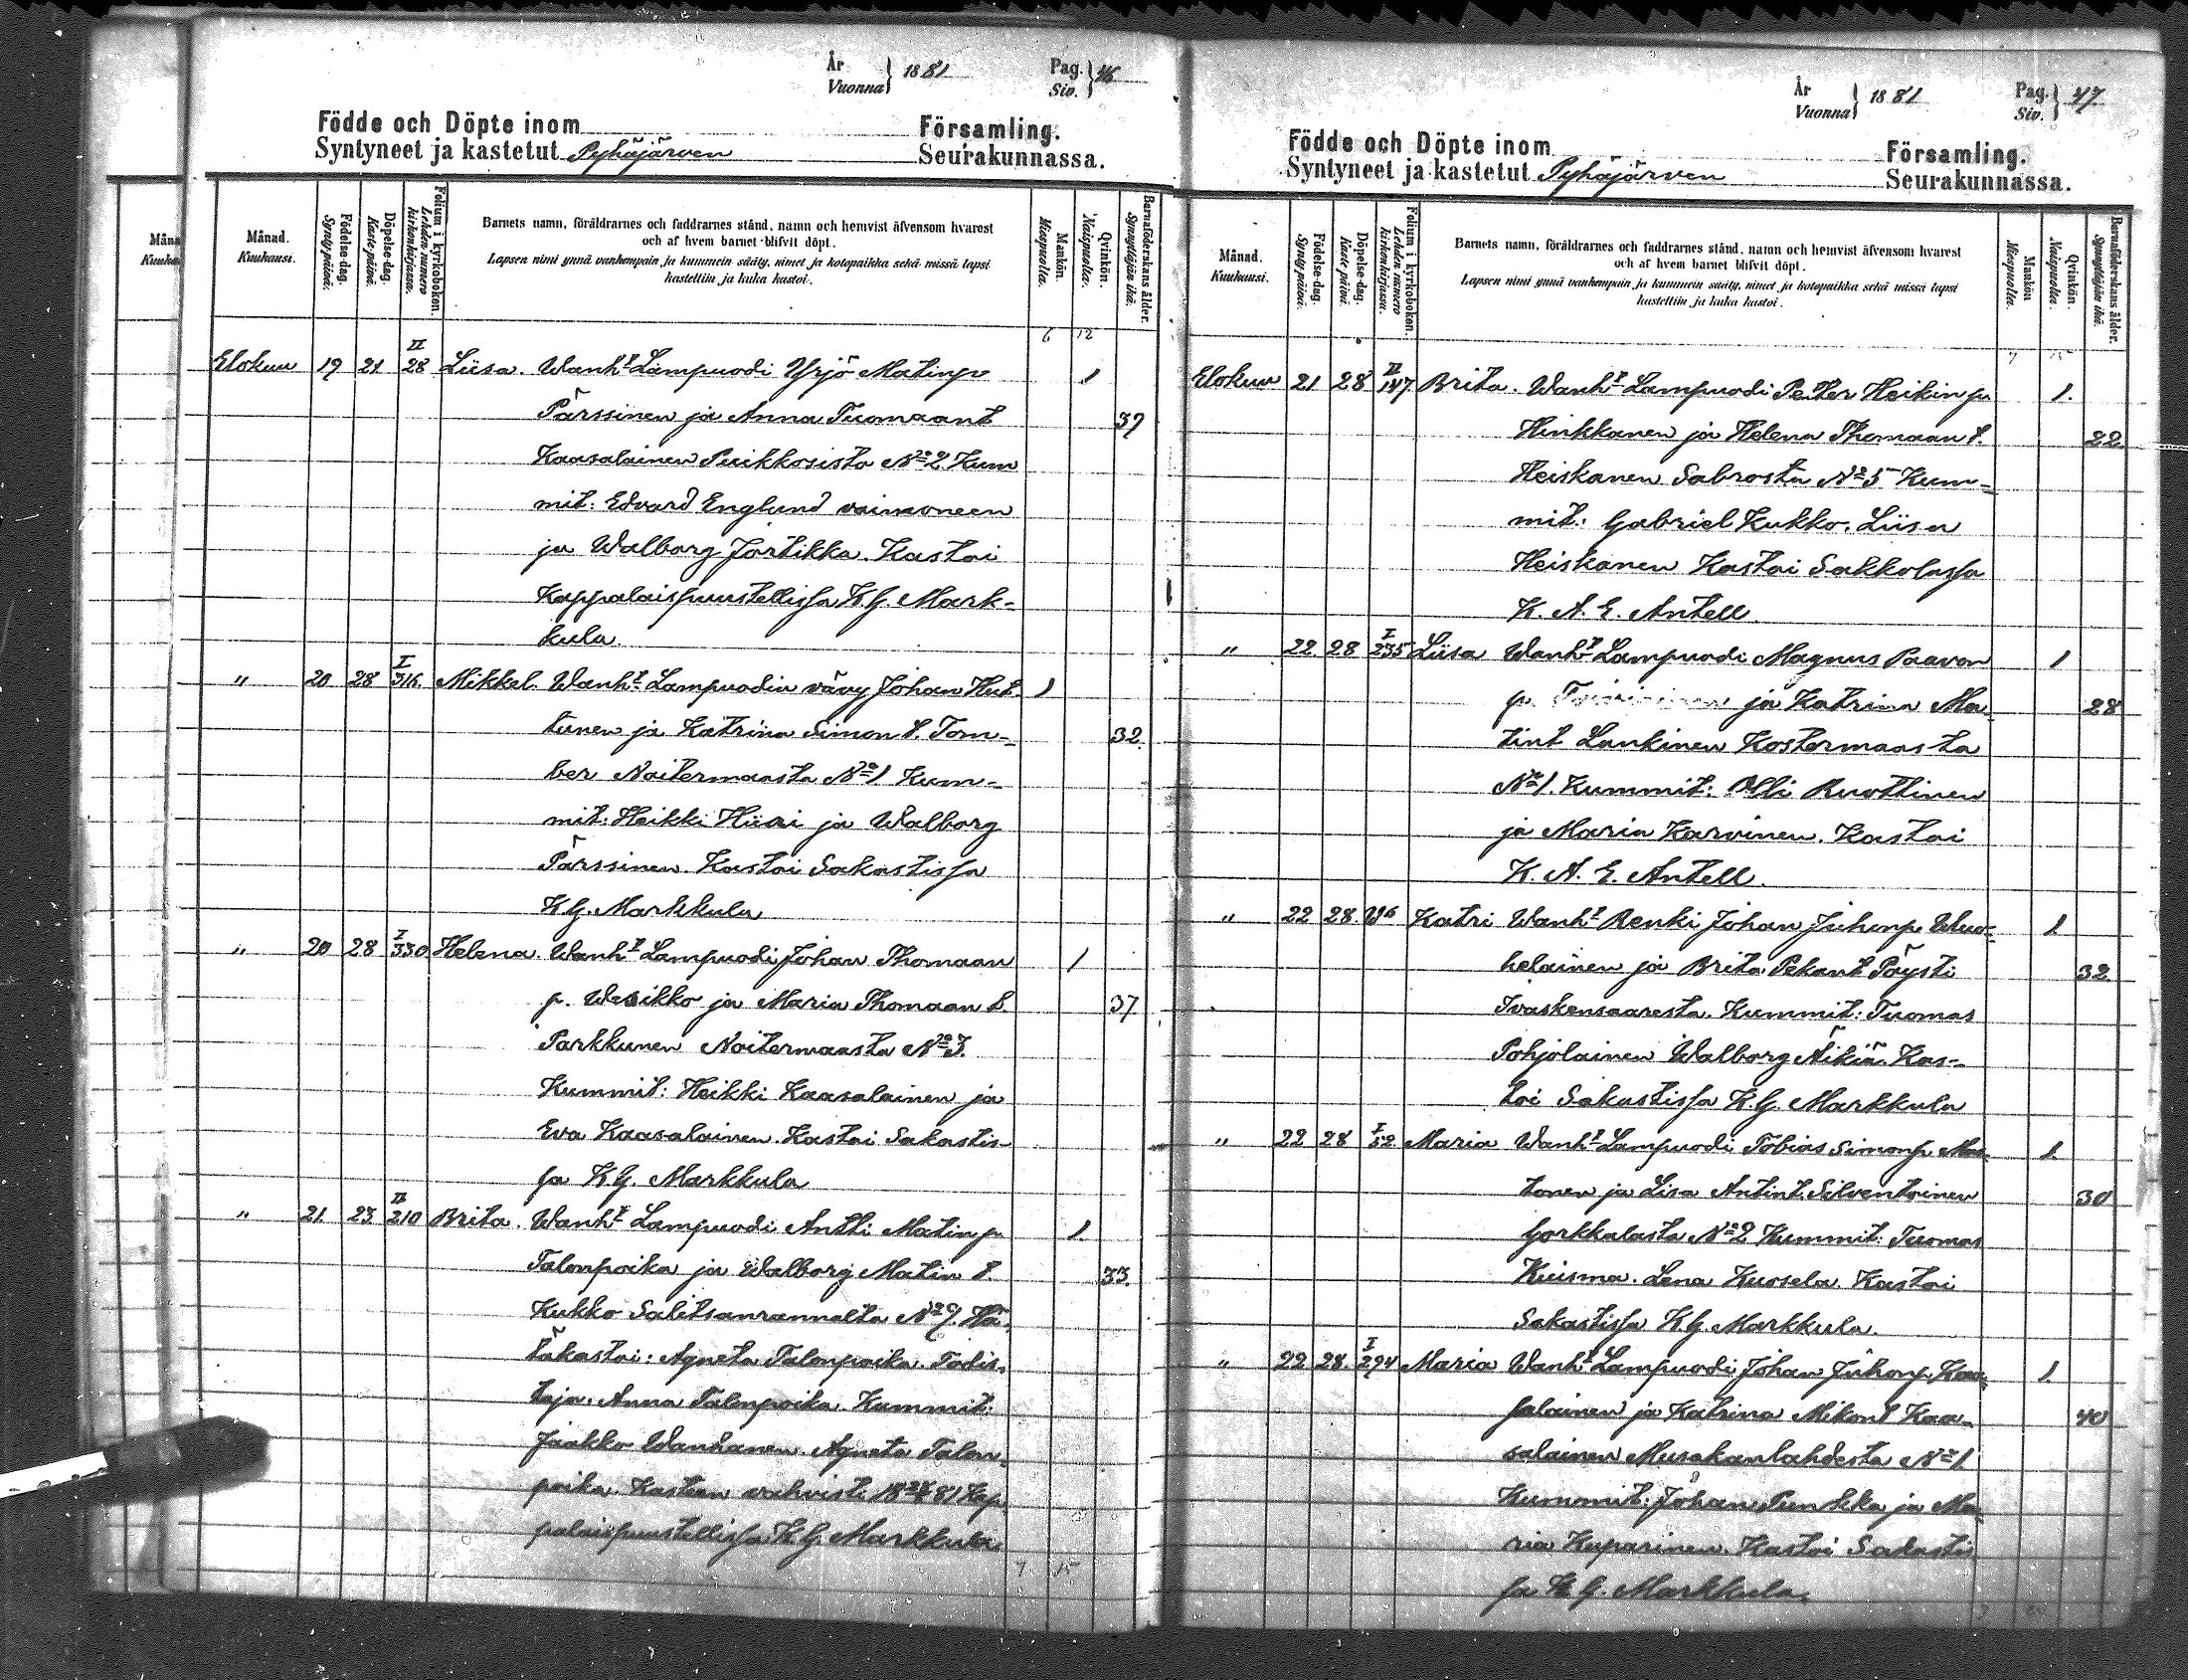 År
Vuonna } 1881
Pag.
Siv. } 46
Födde och Döpte inom Församling.
Syntyneet ja kastetut Pyhäjärven Seurakunnassa.
Månad.
Kuukausi.
Födelse-dag.
Syntypäivä.
Döpelse-dag.
Kaste-päivä.
Folium i kyrkoboken.
Lehden numero kirkonkirjassa.
Barnets namn, föräldrarnes och faddrarnes stånd, namn och hemvist äfvensom hvarest
och af hvem barnet blifvit döpt.
Lapsen nimi ynnä vanhempain ja kummein sääty, nimet ja kotopaikka sekä missä lapsi
kastettiin ja kuka kastoi.
Mankön.
Miespuolta.
Qvinkön.
Naispuolta.
Barnaföderskans ålder.
Synnyttäjän ikä.
6 12
Elokuu 19 21 II 28 Liisa. Wanht Lampuodi Yrjö Matinp.
Pärssinen ja Anna Tuomaant 1
Kaasalainen Puikkoista No 2. Kum 37
mit: Edvard Englund vaimoneen
ja Walborg Jortikka. Kastoi
Kappalaispuustellissa K.G. Mark-
kula.
" 20 28 I 316. Mikkel. Wanht Lampuodin vävy Johan Hut- 1
tunen ja Katriina Simon t. Torn- 32.
ber Noitermaasta No 1. Kum-
mit: Heikki Hiiri ja Walborg
Pärssinen. Kastoi Sakastissa
K.G. Markkula
" 20 28 I 330 Helena. Wanht Lampuodi Johan Thomaan 1
p. Wesikko ja Maria Thomaan t. 37
Parkkunen Noitermaasta No 3.
Kummit: Heikki Kaasalainen ja
Eva Kaasalainen. Kastoi Sakastis-
sa K.G. Markkula
" 21. 23 II 210 Brita. Wanht Lampuodi Antti Matin p. 1.
Talonpoika ja Walborg Matin t. 33.
Kukko Salitsanrannalta No 9. Hä-
täkastoi: Agneta Talonpoika. Todis-
taja. Anna Talonpoika. Kummit:
Jaakko Wanhanen. Agneta Talon-
poika. Kasteen vahvisti 81 Kap-
palaispuustellissa K.G. Markkula.
7. 15
År
Vuonna } 1881
Pag.
Siv. } 47.
Födde och Döpte inom Församling.
Syntyneet ja kastetut Pyhäjärven Seurakunnassa.
Månad.
Kuukausi.
Födelse-dag.
Syntypäivä.
Döpelse-dag.
Kaste-päivä.
Folium i kyrkoboken.
Lehden numero kirkonkirjassa.
Barnets namn, föräldrarnes och faddrarnes stånd, namn och hemvist äfvensom hvarest
och af hvem barnet blifvit döpt.
Lapsen nimi ynnä vanhempain ja kummein sääty, nimet ja kotopaikka sekä missä lapsi
kastettiin ja kuka kastoi.
Mankön
Miespuolta.
Qvinkön.
Naispuolta.
Barnaföderskans ålder.
Synnyttäjän ikä.
7 15
Elokuu 21 28 II 147. Brita. Wanht Lampuodi Petter Heikin p. 1.
Hinkkanen ja Helena Thomaan t. 22
Heiskanen Sabrosta No 5 Kum-
mit: Gabriel Kukko. Liisa
Heiskanen Kastoi Sakkolassa
K. A. E. Antell.
" 22. 28 I 235 Liisa Wanht Lampuodi Magnus Paavon 1
p. ja Katrina Ma- 28
tint Lankinen Kostermaasta
No 1. Kummit: Olli Ruottinen
ja Maria Karvinen. Kastoi
K. A. E. Antell.
" 22 28. Katri Wanht Renki Johan Juhonp. Wuo- 1
helainen ja Brita Pekant Pöysti 32
Ivaskensaaresta. Kummit: Tuomas
Pohjolainen Walborg Äikiä. Kas-
toi Sakastissa K.G. Markkula
" 22 28 I 52 Maria Wanht Lampuodi Tobias Simonp. Mas- 1.
tonen ja Lisa Antint. Silventoinen 30
Gorkkalasta No 2 Kummit: Tuomas
Kuisma. Lena Kuosela. Kastoi
Sakastissa K.G. Markkula.
" 22 28. I 294 Maria Wanht Lampuodi Johan Juhonp. Kaa- 1.
salainen ja Katrina Mikont Kaa- 40
salainen Musakanlahdesta No 1.
Kummit: Johan Puukka ja Ma-
ria Kuparinen. Kastoi Sakastis
sa K.G. Markkula.